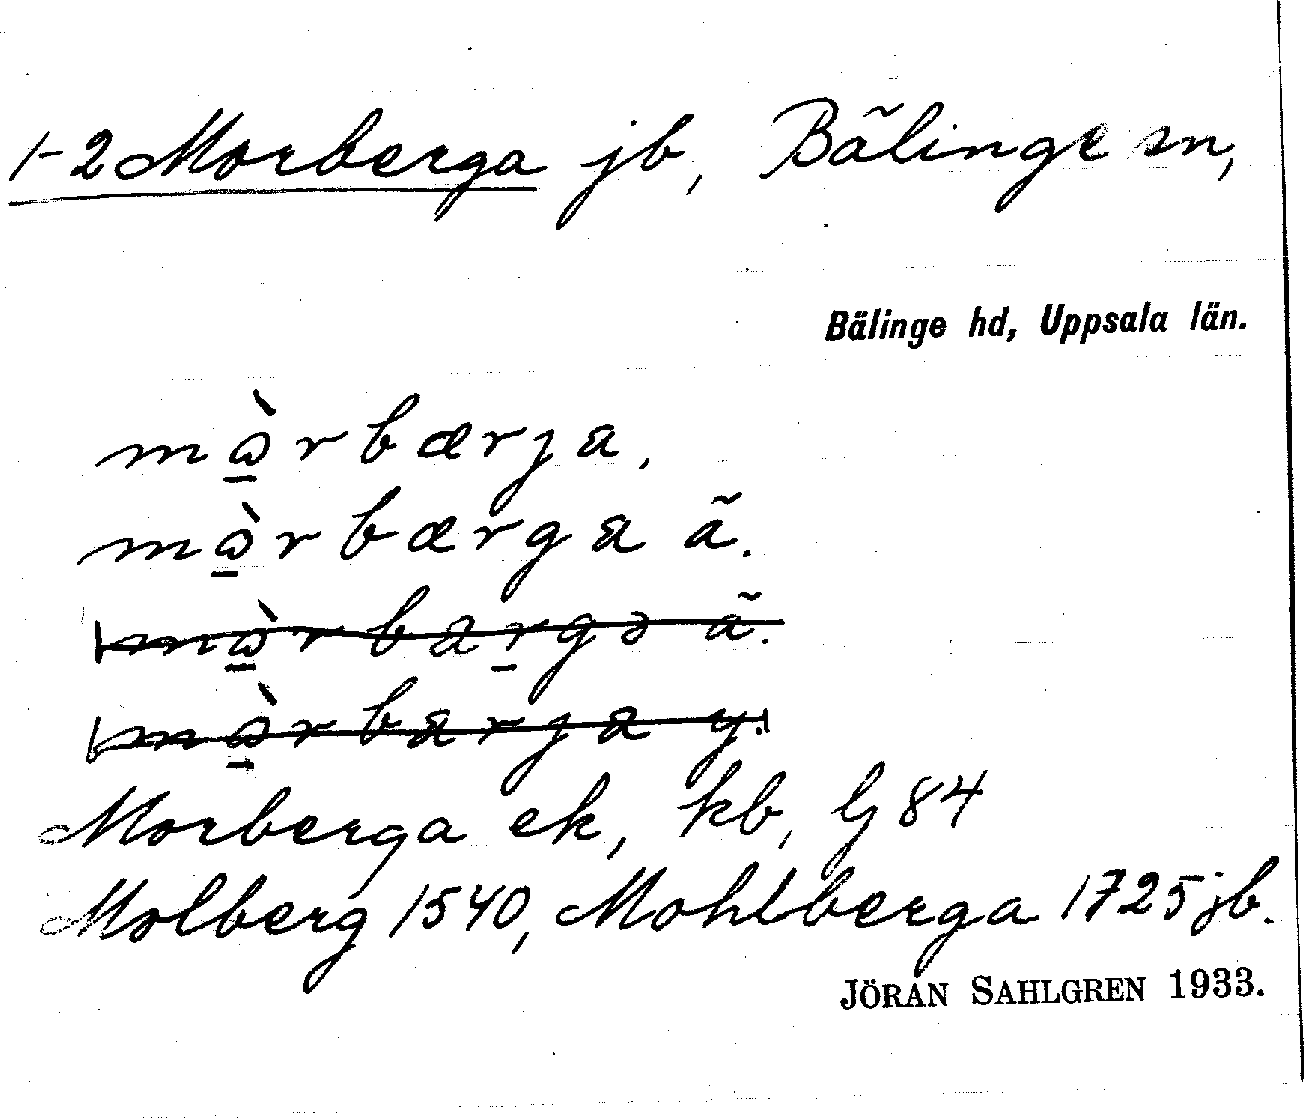 1-2 Morberga jb, Bälinge sn,
Bälinge hd, Uppsala län.
mɷ̲̀rbærja,
mɷ̲̀rbærga ã.
mɷ̲̀rbar̲gə ã.
mɷ̲̀rbarja y.
Morberga ek, kb, lj 84
Molberg 1540, Mohlberga 1725 jb.
JÖRAN SAHLGREN 1933.